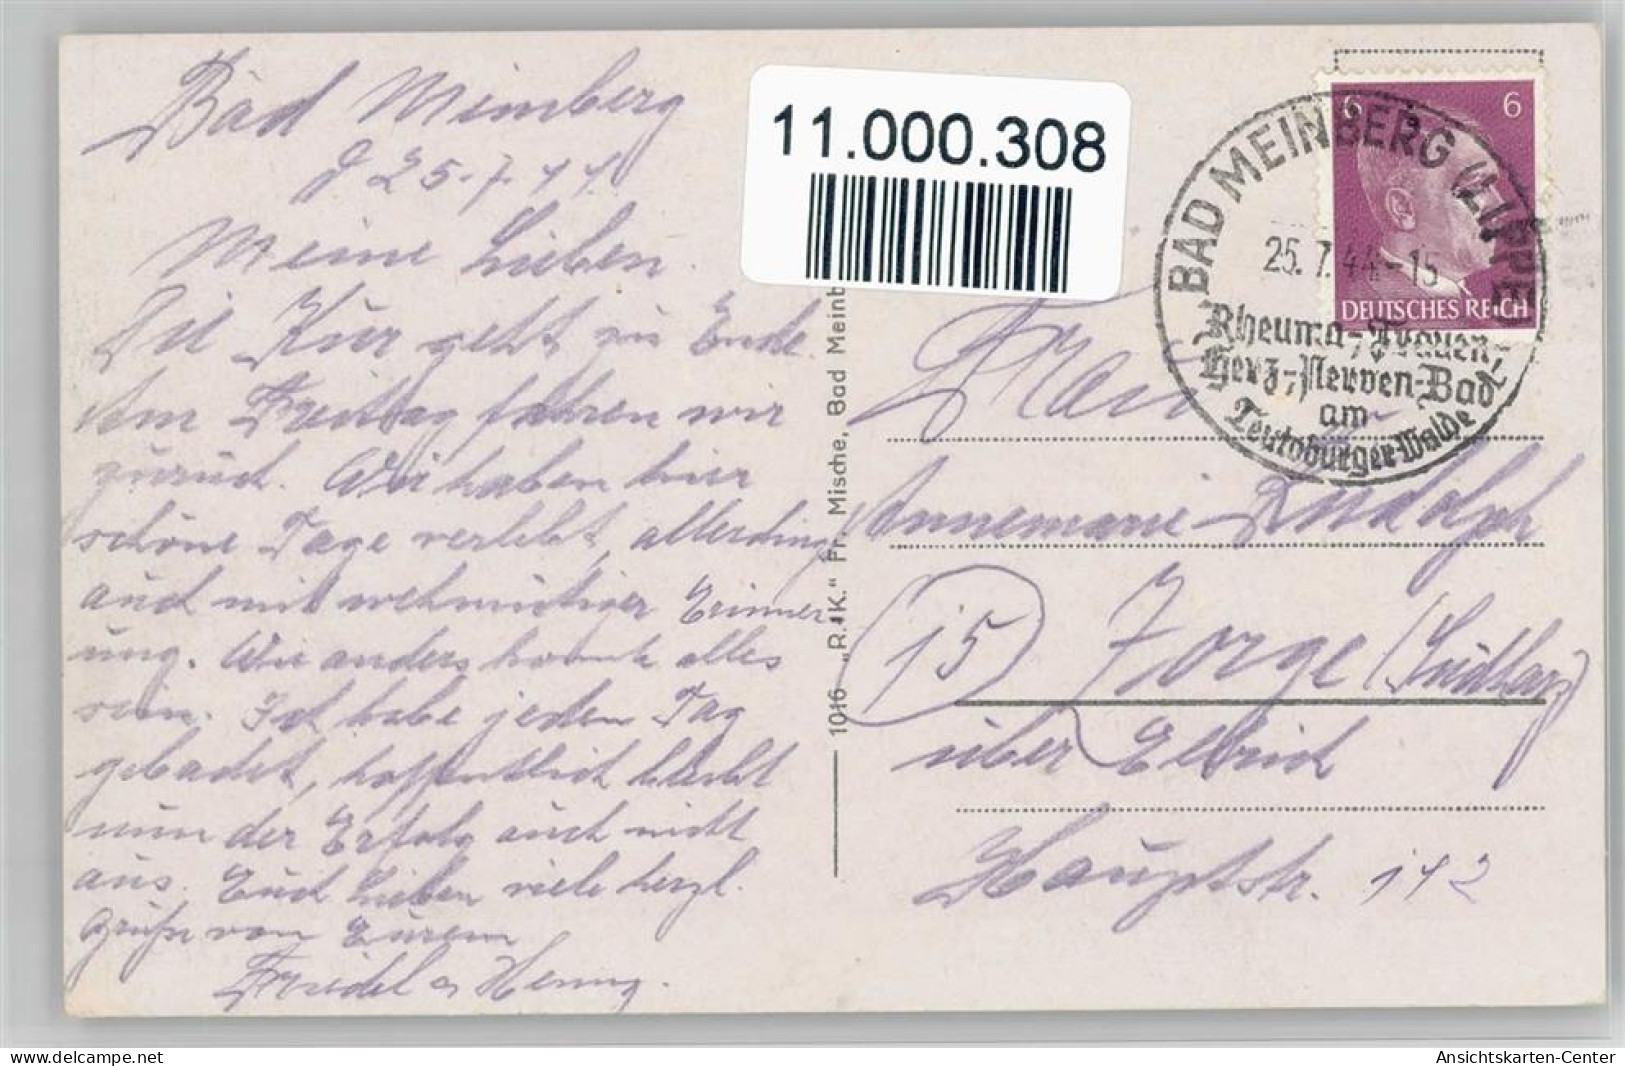 Bad Meinberg
d 25.7.44.
Meine Lieben.
Die Kur geht zu Ende.
Am Freitag fahren wir
zurück. Wir haben hier
schöne Tage verlebt, allerdings
auch mit wehmütiger Erinner
ung. Wie anders könnte alles
sein. Ich habe jeden Tag
gebadet, hoffentlich bleibt
nun der Erfolg auch nicht
aus. Euch Lieben viele herzl.
Grüße von Eurem
Friedel u Henny.
11.000.308
1016 „R.-K." Fr. Mische, Bad Meinb
6 6
DEUTSCHES REICH
BAD MEINBERG (LIPPE)
25.7.44-15
Rheuma-, Frauen-,
Herz-, Nerven-Bad
am
Teutoburger Walde
Frau
Annemarie Rudolph
(15) Zorge (Südharz)
über Ellrich
Hauptstr. 142
delcampe.net
Ansichtskarten-Center